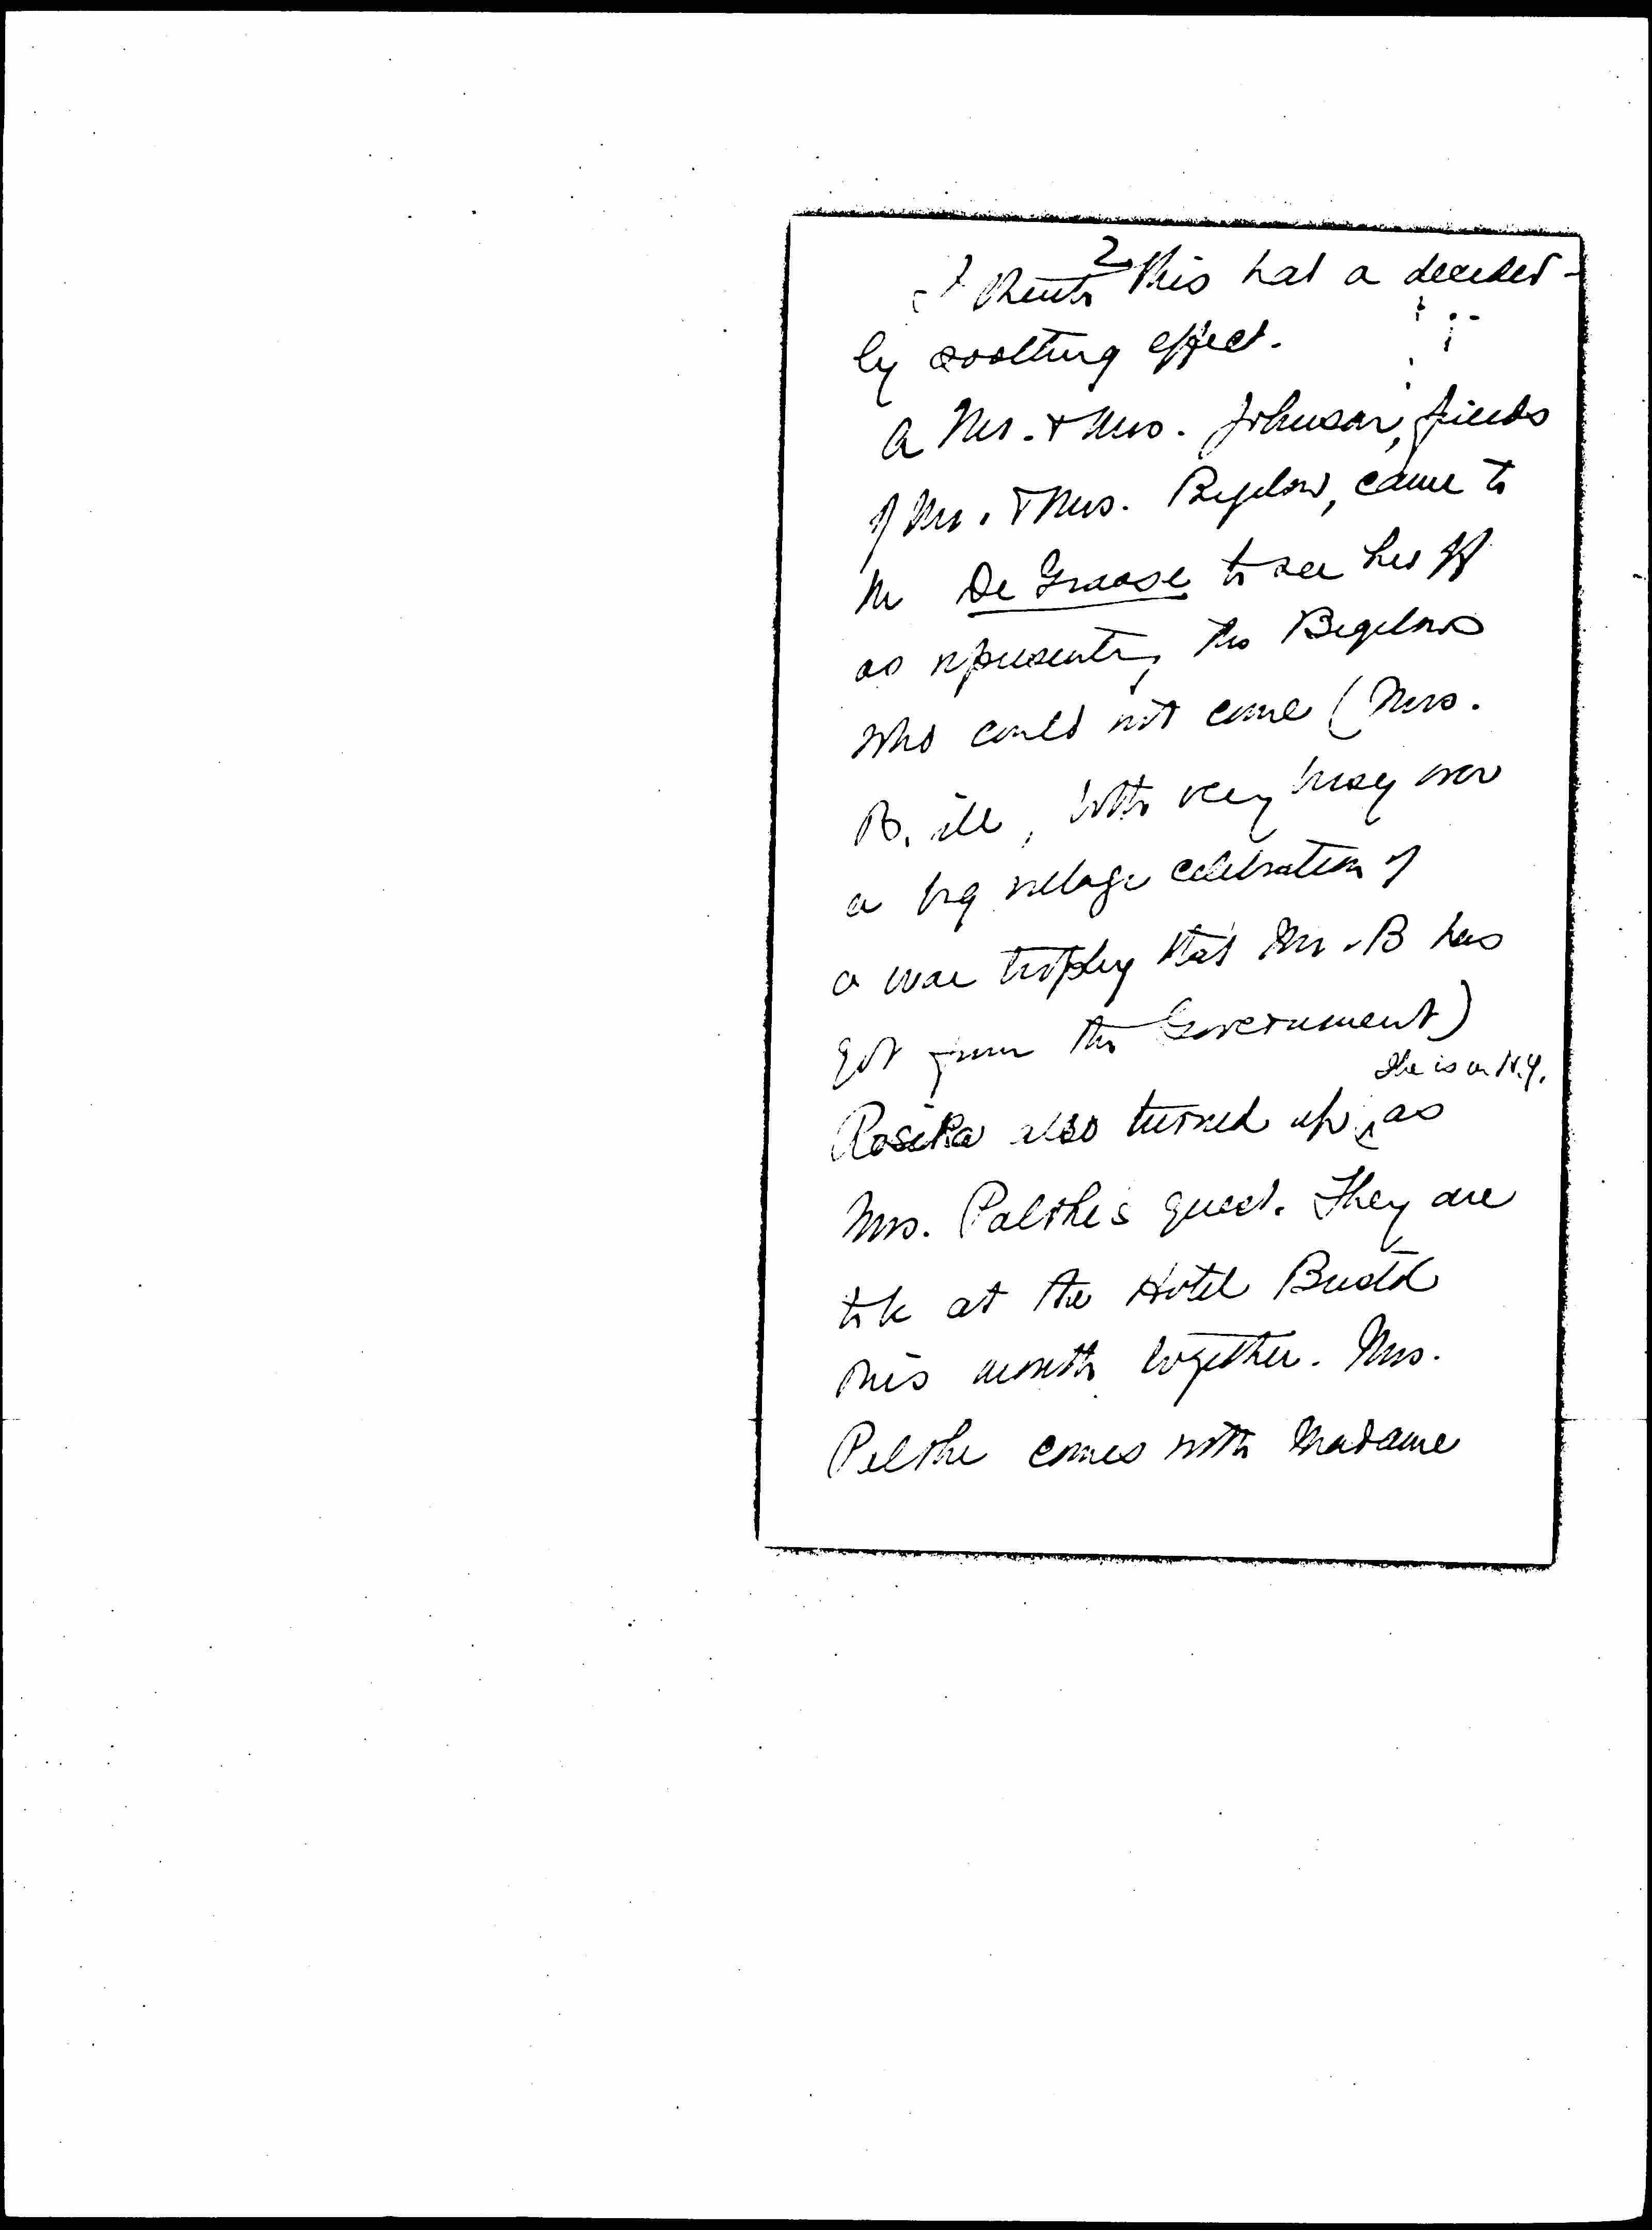 2
I think this had a decided-
ly soothing effect.
A Mr. & Mrs. Johnson, friends
of Mr. & Mrs. Bigelow, came to
the De Grasse to see her off
as representing the Bigelows
who could not come (Mrs.
B. ill, both very busy over
a big village celebration of
a war trophy that Mr. B has
got from the Government)
She is in N.Y.
Rosika also turned up, as
Mrs. Palthe's guest. They are
to be at the Hotel
this month together. Mrs.
Palthe comes with Madame